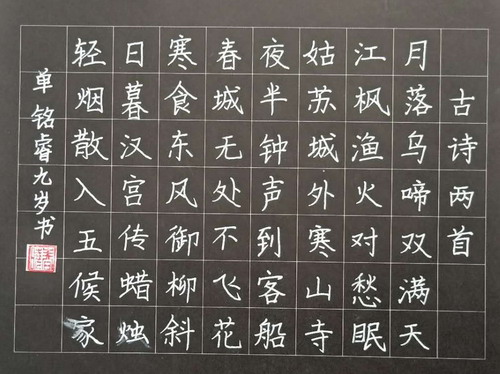 古诗两首
月落乌啼双满天
江枫渔火对愁眠
姑苏城外寒山寺
夜半钟声到客船
春城无处不飞花
寒食东风御柳斜
日暮汉宫传蜡烛
轻烟散入五候家
单铭睿九岁书